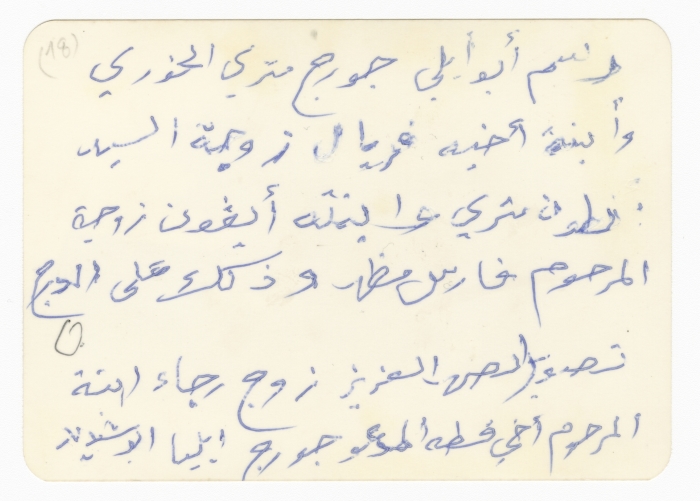 (18)
رسم أبو أيلي جورج متري الخوري
وأبنة أخيه فريال زوجة السيد
أنطون متري وابنته أيفون زوجة
المرحوم فارس مظهر وذلك على الدرج
تصوير العزيز زوج رجاء ابنة
المرحوم أخي قسطه المدعو جورج ايليا